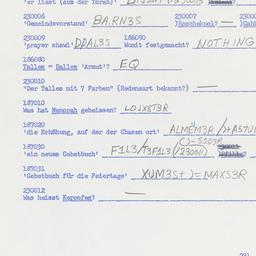 'er liest (aus der Torah)'
230006 230007 2300
'Gemeindevorstand' BA.RN3S )Reschekool? — )Gabl
230009 186090
'prayer shawl' DDAL3S Wuzit festgemacht? NOTHING
186080
Talles = Dalles 'Armut'? EQ
230010
'Der Talles mit 7 Farben" (Redensart bekannt?) —
187010
Was hat Menorah geheissen? LDJX8T3R
187020
'die Erhöhung, auf der der Chasen ort' ALMEM3R /+A5TU
187030 230011
'ein neues Gebetbuch' F1L3/T3F1L3(/230011)
187031
'Gebetbuch für die Feiertage' XUM3S+)=MAXS3R
230012
Was hiesst Keroofes? —
231